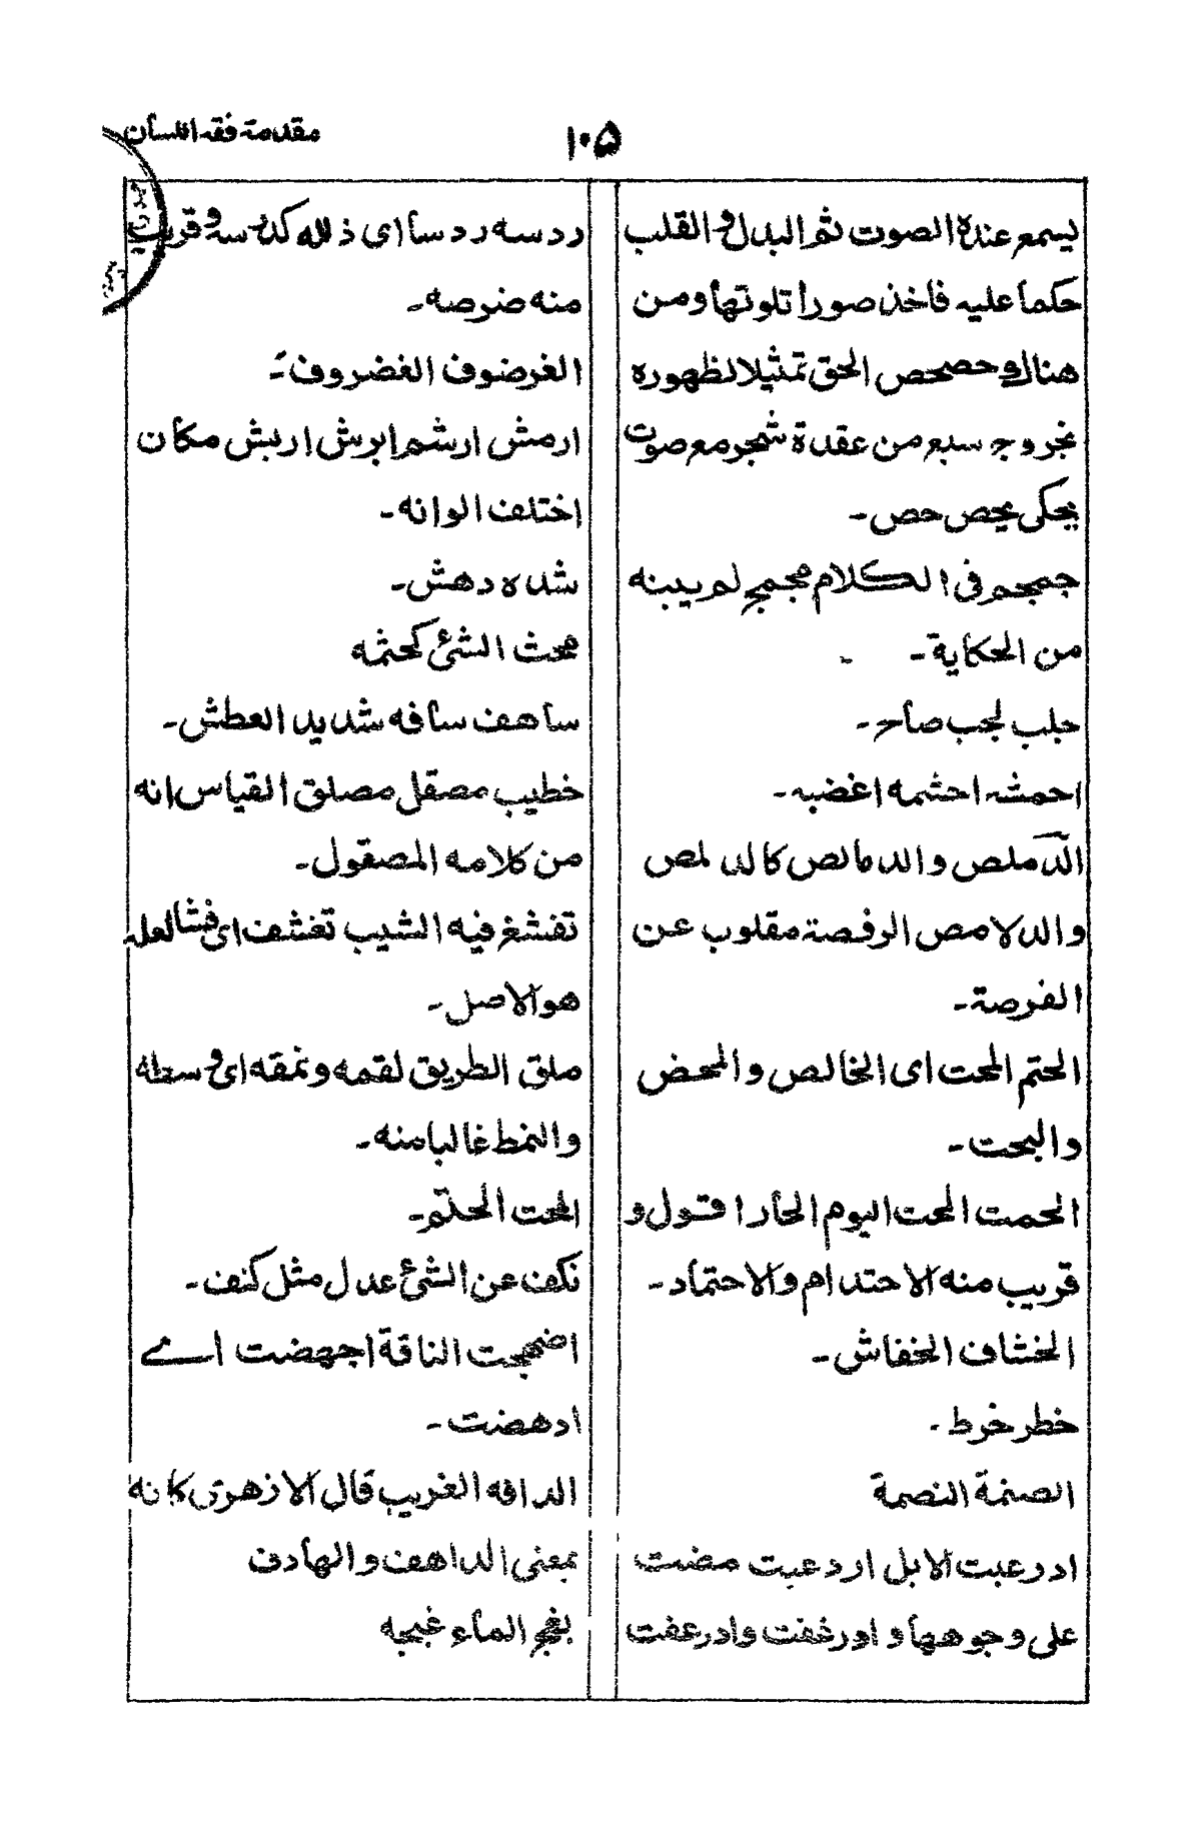 مقدمة فقه اللسان
١٠٥
يسمع عنده الصوت ثم البدل والقلب
حكما عليه فاخذ صورا تلوتها ومن
هنالك وحصحص الحق تمثيلا لظهوره
بخروج سبع من عقدة شجر مع صوت
يحكى بحص حص۔
جمجم فى الكلام مجمج لم يبينه
من الحكاية۔
جلب لجب صاح۔
احمشه احشمه اغضبه۔
الدملص والدمالص كالدلمص
والدلامص الرفصة مقلوب عن
الفرصة۔
الحتم المحت اى الخالص والمحض
والبحت۔
الحمت المحت اليوم الحار اقول و
قريب منه الاحتدام والاحتماد۔
الخشاف الخفاش۔
خطر خرط۔
الصنمة النصمة
ادرعبت الابل اردعبت مضت
على وجوهها و ادرغفت وادرعفت
ردسه ردسا اى ذلله كدسه وقريب
منه ضرصه۔
الغرضوف الغضروف۔
ارمش ارشم ابرش اربش مكان
اختلف الوانه۔
شده دهش۔
محث الشئ كحثمه
ساهف سافه شديد العطش۔
خطيب مصقل مصلق القياس انه
من كلامه المصقول۔
تفشغ فيه الشيب تغشف اى فشا لعله
هو الاصل۔
ملق الطريق لقمه ونمقه اى وسطه
والنمط غالبا منه۔
المحت الحلتم۔
نكف عن الشئ عدل مثل كنف۔
اضهجت الناقة اجهضت اے
ادهضت۔
الدافه الغريب قال الازهرى كانه
بمعنى الداهف والهادف
بغج الماء غبجه